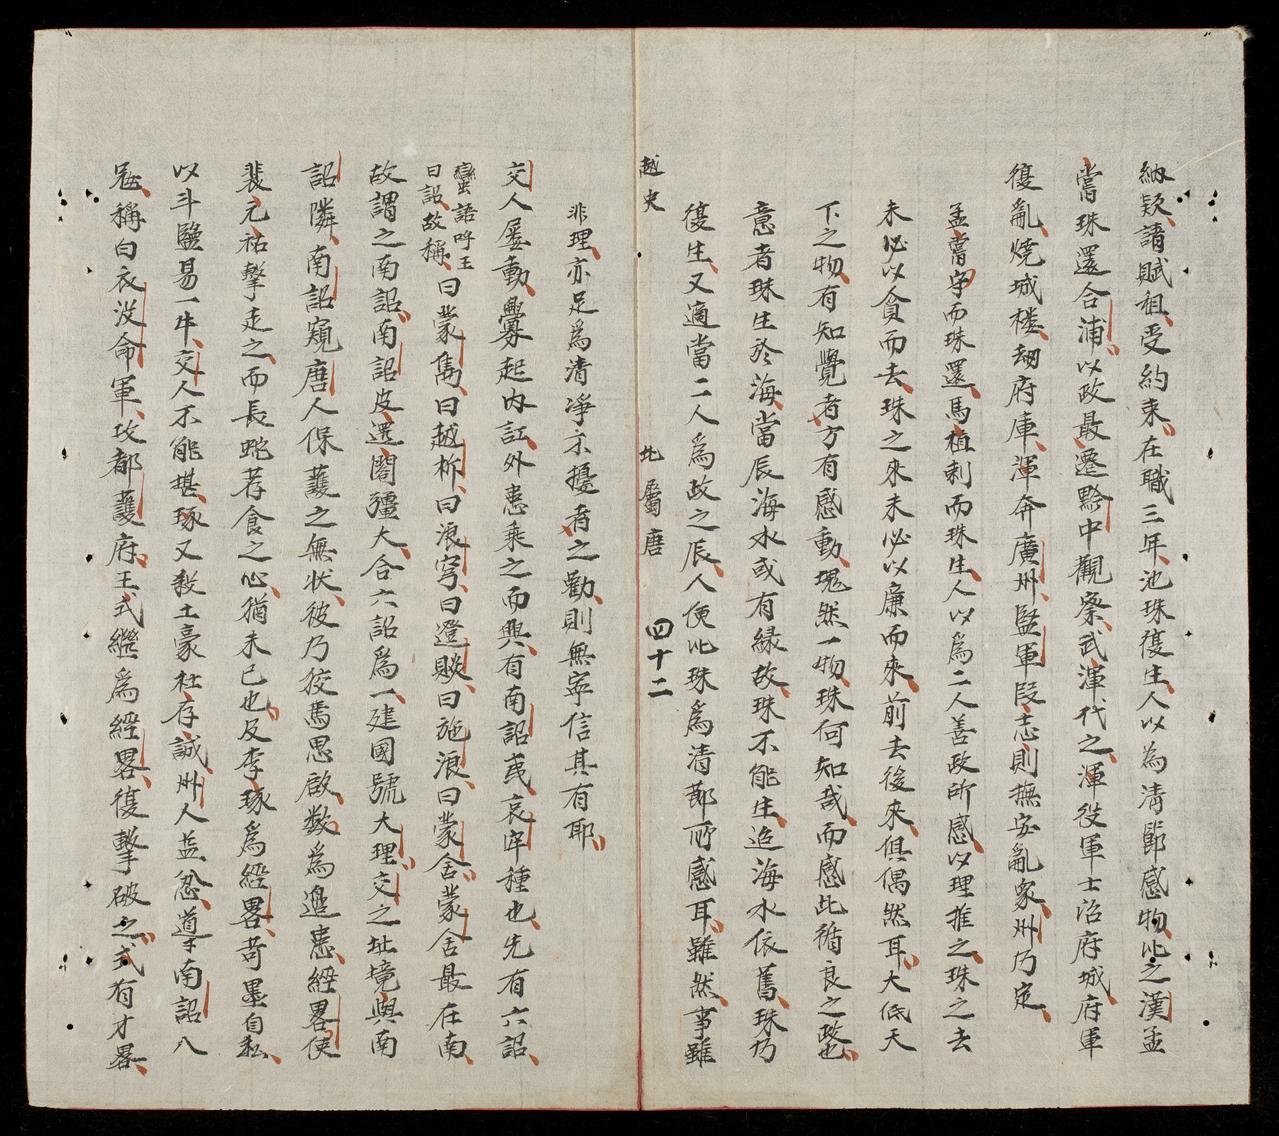 納欵請賦租受約束在職三年池珠復生人以為清節感物比之漢孟
嘗珠還合浦以政最遷黔中觀察武渾代之渾役軍士治府城府軍
復亂燒城樓劫府庫渾奔廣州監軍段志則撫安亂衆州乃定
孟嘗守而珠還馬植刺而珠生人以爲二人善政所感以理推之珠之去
未必以貪而去珠之來未必以廉而來前去後來俱偶然耳大低天
下之物有知覺者方有感動塊然一物珠何知哉而感此循良之政也
意者珠生於海當辰海水或有緣故珠不能生迨海水依舊珠乃
復生又適當二人爲政之辰人便比珠爲清節所感耳雖然事雖
越史 北屬唐 四十二
非理亦足爲清凈不擾者之勸則無寧信其有耶
交人屡動釁起內訌外患乘之而興有南詔夷哀牢種也先有六詔
蠻語呼王
曰詔故稱
曰蒙雋曰越析曰浪穹曰邆賧曰施浪曰蒙舍蒙舍最在南
故謂之南詔南詔皮邏閣彊大合六詔爲一建國號大理交之址境與南
詔隣南詔窺唐人保護之無状彼乃狡焉思啟数爲邉患經畧使
裴元祐擊走之而長虵荐食之心猶未已也及李琢爲經畧苛墨自私
以斗鹽易一牛交人不能堪琢又殺土豪社存誠州人益忿導南詔入
冦稱白衣没命軍攻都護府王式繼爲經畧復擊破之式有才畧